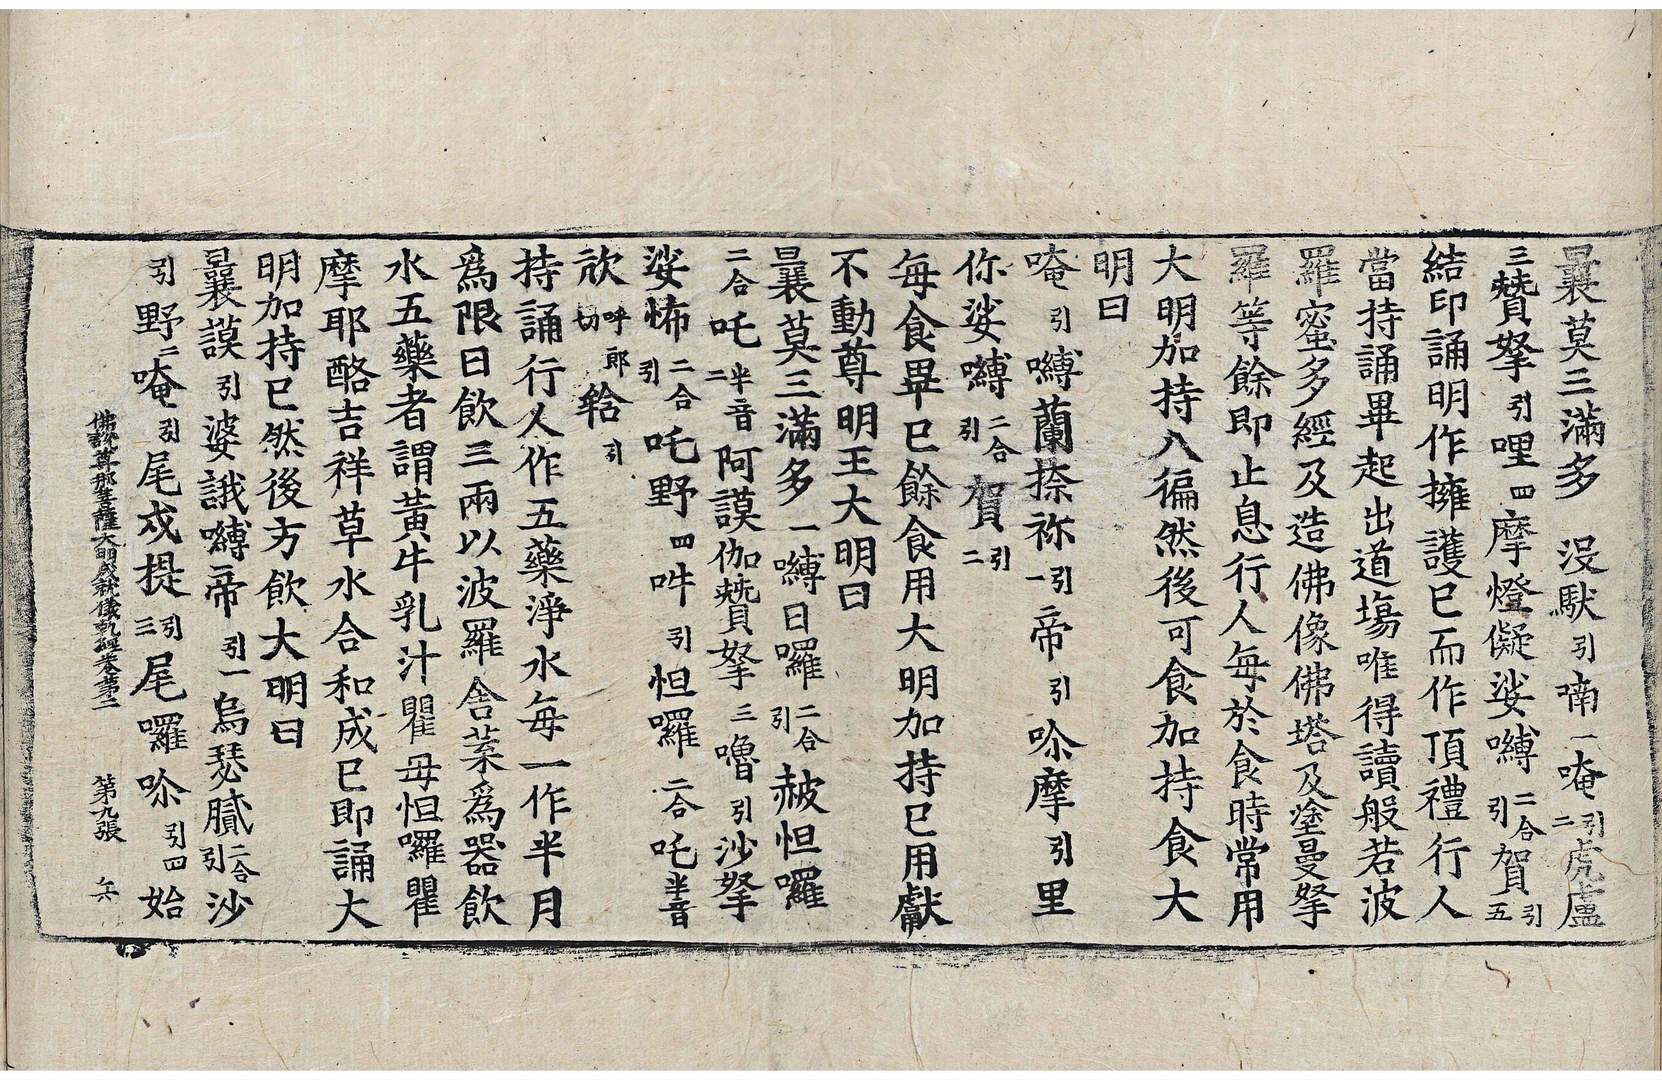 曩莫三滿多沒馱引喃一唵引二虎盧
三贊拏引哩四摩燈儗娑嚩二合引賀引五
結印誦明作擁護已而作頂禮行人
當持誦畢起出道場唯得讀般若波
羅蜜多經及造佛像佛塔及塗曼拏
羅等餘即止息行人每於食時常用
大明加持八徧然後可食加持食大
明曰
唵引嚩蘭捺祢一引帝引唋摩引里
你娑嚩二合引賀引二
每食畢已餘食用大明加持已用獻
不動尊明王大明曰
曩莫三滿多一嚩日囉二合引赧怛囉
二合吒半音二阿謨伽贊拏三嚕引沙拏
娑怖二合引吒野四吽引怛囉二合吒半音
欣呼郎切輅引
持誦行人作五藥淨水每一作半月
為限日飲三兩以波羅舍葉為器飲
水五藥者謂黃牛乳汁瞿毋怛囉瞿
摩耶酪吉祥草水合和成已即誦大
明加持已然後方飲大明曰
曩謨引婆誐嚩帝引一烏瑟膩二合引沙
引野二唵引尾戍提引三尾囉唋引四始
佛說尊那菩薩大明成就儀軌經卷第二 第九張